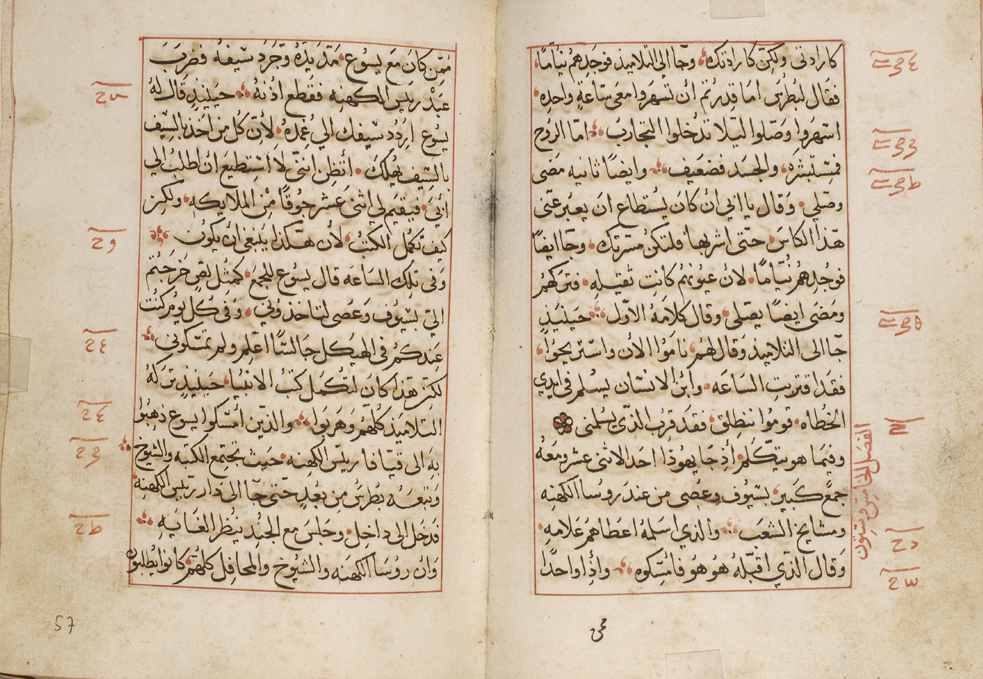 كارادتى ولكن كارادتك وجا الى التلاميد فوجدهم نياما
فقال لبطرس اما قدرتم ان تسهروا معى ساعة واحده
اسهروا وصلوا ليلا تدخلوا التجارب اما الروح
فمستبشره والجسد فضعيف وايضا ثانيه مضى
وصلي وقال يا ابي ان كان يستطاع ان يعبر عنى
هذا الكاس حتى اشربها فلتكن مسرتك وجا ايضا
فوجدهم نياما لان عيونهم كانت ثقيله فتركهم
ومضى ايضا يصلى وقال كلامة الاول حينيذ
جا الى التلاميد وقال لهم ناموا الان واستريحوا
فقد اقتربت الساعه وابن الانسان يسلم في ايدي
الخطاه قوموا ننطلق فقد قرب الذى يسلمنى
وفيما هو يتكلم اذ جا يهوذا احد الاثنى عشر ومعه
جمع كبير بسيوف وعصى من عند روسا الكهنه
ومشايخ الشعب والذي اسلمه اعطاهم علامه
وقال الذي اقبله هو هو فامسكوه واذا واحدا
الفصل الخامس وستون
ممن كان مع يسوع مد يده وجرد سيفه فضرب
عبد ريس الكهنه فقطع اذنه حينيذ قال له
يسوع اردد سيفك الي غمده لان كل من اخذ بالسيف
بالسيف يهلك اتظن اننى لا استطيع ان اطلب الى
ابى فيقيم لى اثنى عشر جوقا من الملايكه ولكن
كيف تكمل الكتب لان هكذا ينبغى ان يكون
وفى تلك الساعه قال يسوع للجمع كمثل لص خرجتم
الي بسيوف وعصى لتاخذونى وفى كل يوم كنت
عندكم فى الهيكل جالسا اعلم ولم تمسكونى
لكن هذا كان لتكمل كتب الانبيا حينيذ تركه
التلاميذ كلهم وهربوا والذين امسكوا يسوع ذهبوا
به الى قيافا ريس الكهنه حيث تجتمع الكتبه والشيوخ
وتبعه بطرس من بعد حتى جا الى دار ريس الكهنه
فدخل الى داخل وجلس مع الجند ينظر الغايه
وان روسا الكهنه والشيوخ والمحافل كلهم كانوا يطلبون
57